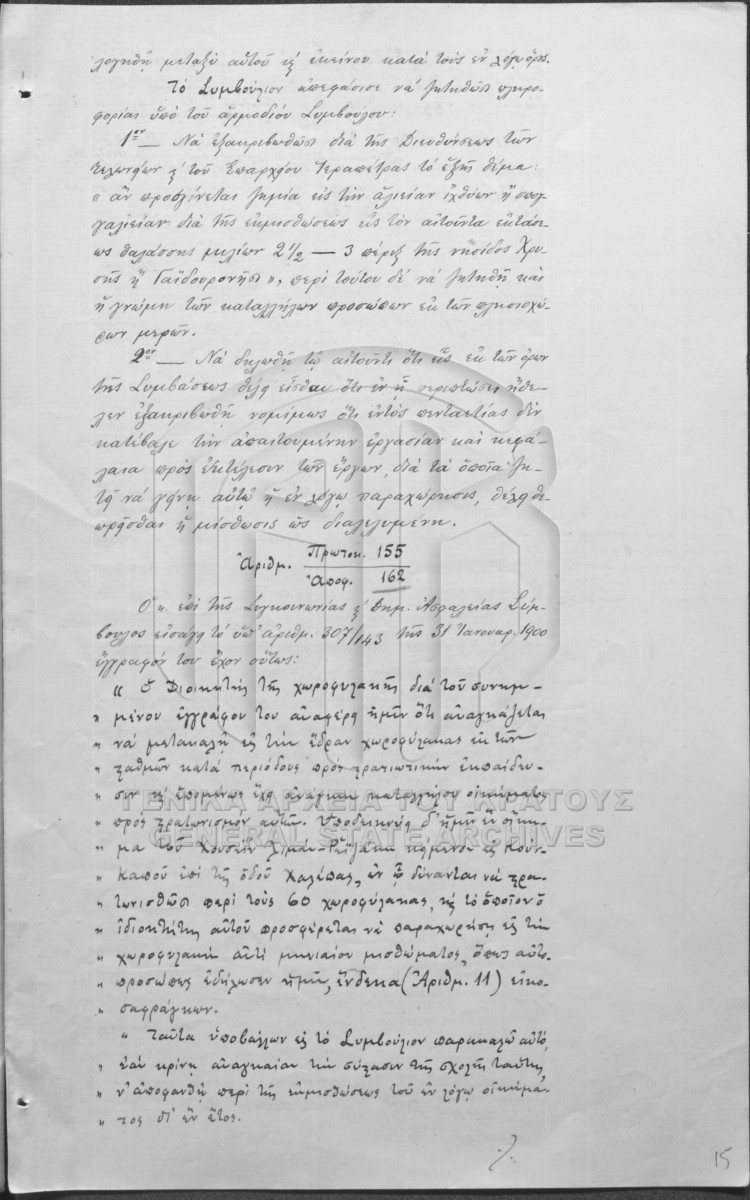 λογηθῇ μεταξὺ αὐτοῦ κ ἐκείνου κατὰ τοὺς ἐν λόγῳ ὅρους.
Τὸ Συμβούλιον ἀπεφάσισε νὰ ζητηθῶσι πληρο-
φορίαι ὑπὸ τοῦ ἁρμοδίου Συμβούλου:
1ον — Νὰ ἐξακριβωθῶσι διὰ τῆς Διευθύνσεως τῶν
Τελωνείων κ τοῦ Ἐπαρχείου Ἱεραπέτρας τὸ ἑξῆς θέμα:
« ἂν προσγίνεται ζημία εἰς τὴν ἁλιείαν ἰχθύων ἢ σπογ-
γαλιείαν διὰ τῆς ἐκμισθώσεως εἰς τὸν αἰτοῦντα ἐκτάσε-
ως θαλάσσης μιλίων 2 1/2 — 3 πέριξ τῆς νησῖδος Χρυ-
σῆς ἢ Γαϊδουρονῆσι», περὶ τούτου δὲ νὰ ζητηθῇ καὶ
ἡ γνώμη τῶν καταλλήλων προσώπων ἐκ τῶν πλησιοχώ-
ρων μερῶν.
2ον — Νὰ δηλωθῇ τῷ αἰτοῦντι ὅτι εἷς ἐκ τῶν ὅρων
τῆς Συμβάσεως θέλει εἶσθαι ὅτι ἐν ᾗ περιπτώσει ἤθε-
λεν ἐξακριβωθῆ νομίμως ὅτι ἐντὸς πενταετίας δὲν
κατέβαλε τὴν ἀπαιτουμένην ἐργασίαν καὶ κεφά-
λαια πρὸς ἐκτέλεσιν τῶν ἔργων, διὰ τὰ ὁποῖα ζη-
τεῖ νὰ γείνῃ αὐτῷ ἡ ἐν λόγῳ παραχώρησις, θέλει θε-
ωρεῖσθαι ἡ μίσθωσις ὡς διαλελυμένη.
Ἀριθμ. Πρωτοκ. 155
Ἀποφ. 162
Ὁ κ. ἐπὶ τῆς Συγκοινωνίας κ Δημ. Ἀσφαλείας Σύμ-
βουλος εἰσάγει τὸ ὑπ' ἀριθμ. 307/143 τῆς 31 Ἰανουαρ. 1900
ἔγγραφόν του ἔχον οὕτως:
« Ὁ Διοικητὴς τῆς χωροφυλακῆς διὰ τοῦ συνημ-
» μένου ἐγγράφου του ἀναφέρει ἡμῖν ὅτι ἀναγκάζεται
» νὰ μετακαλῇ εἰς τὴν ἕδραν χωροφύλακας ἐκ τῶν
» σταθμῶν κατὰ περιόδους πρὸς στρατιωτικὴν ἐκπαίδευ-
» σιν κ ἑπομένως ἔχει ἀνάγκην καταλλήλου οἰκήματος
» πρὸς στρατωνισμὸν αὐτῶν. Ὑποδεικνύει δ' ἡμῖν ἓν οἴκη-
» μα τοῦ Χουσεῒν κείμενον εἰς Κουν-
» Καποῦ ἐπὶ τῆς ὁδοῦ Χαλέπας, ἐν ᾧ δύνανται νὰ στρα-
» τωνισθῶσι περὶ τοὺς 60 χωροφύλακας, κ τὸ ὁποῖον ὁ
» ἰδιοκτήτης αὐτοῦ προσφέρεται νὰ παραχωρήσῃ εἰς τὴν
» χωροφυλακὴν ἀντὶ μηνιαίου μισθώματος, ὅπως αὐτο-
» προσώπως ἐδήλωσεν ἡμῖν, ἕνδεκα (Ἀριθμ. 11) εἰκο-
» σαφράγκων.
» Ταῦτα ὑποβάλλων εἰς τὸ Συμβούλιον παρακαλῶ αὐτό,
» ἐὰν κρίνῃ ἀναγκαίαν τὴν σύστασιν τῆς σχολῆς ταύτης,
» ν' ἀποφανθῇ περὶ τῆς ἐκμισθώσεως τοῦ ἐν λόγῳ οἰκήμα-
» τος δι' ἓν ἔτος.
./.
15
ΓΕΝΙΚΑ ΑΡΧΕΙΑ ΤΟΥ ΚΡΑΤΟΥΣ
GENERAL STATE ARCHIVES